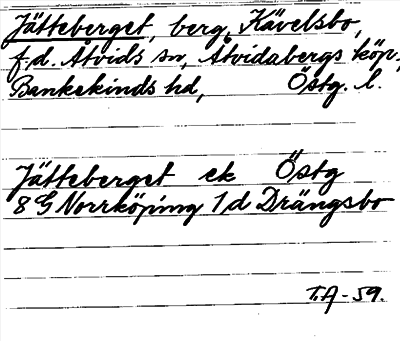 Jätteberget, berg, Kävelsbo,
f.d. Åtvids sn, Åtvidabergs köp.,
Bankekinds hd, Östg. l.
Jätteberget ek Östg
8 G Norrköping 1/d Drängsbo
T.A - 59.